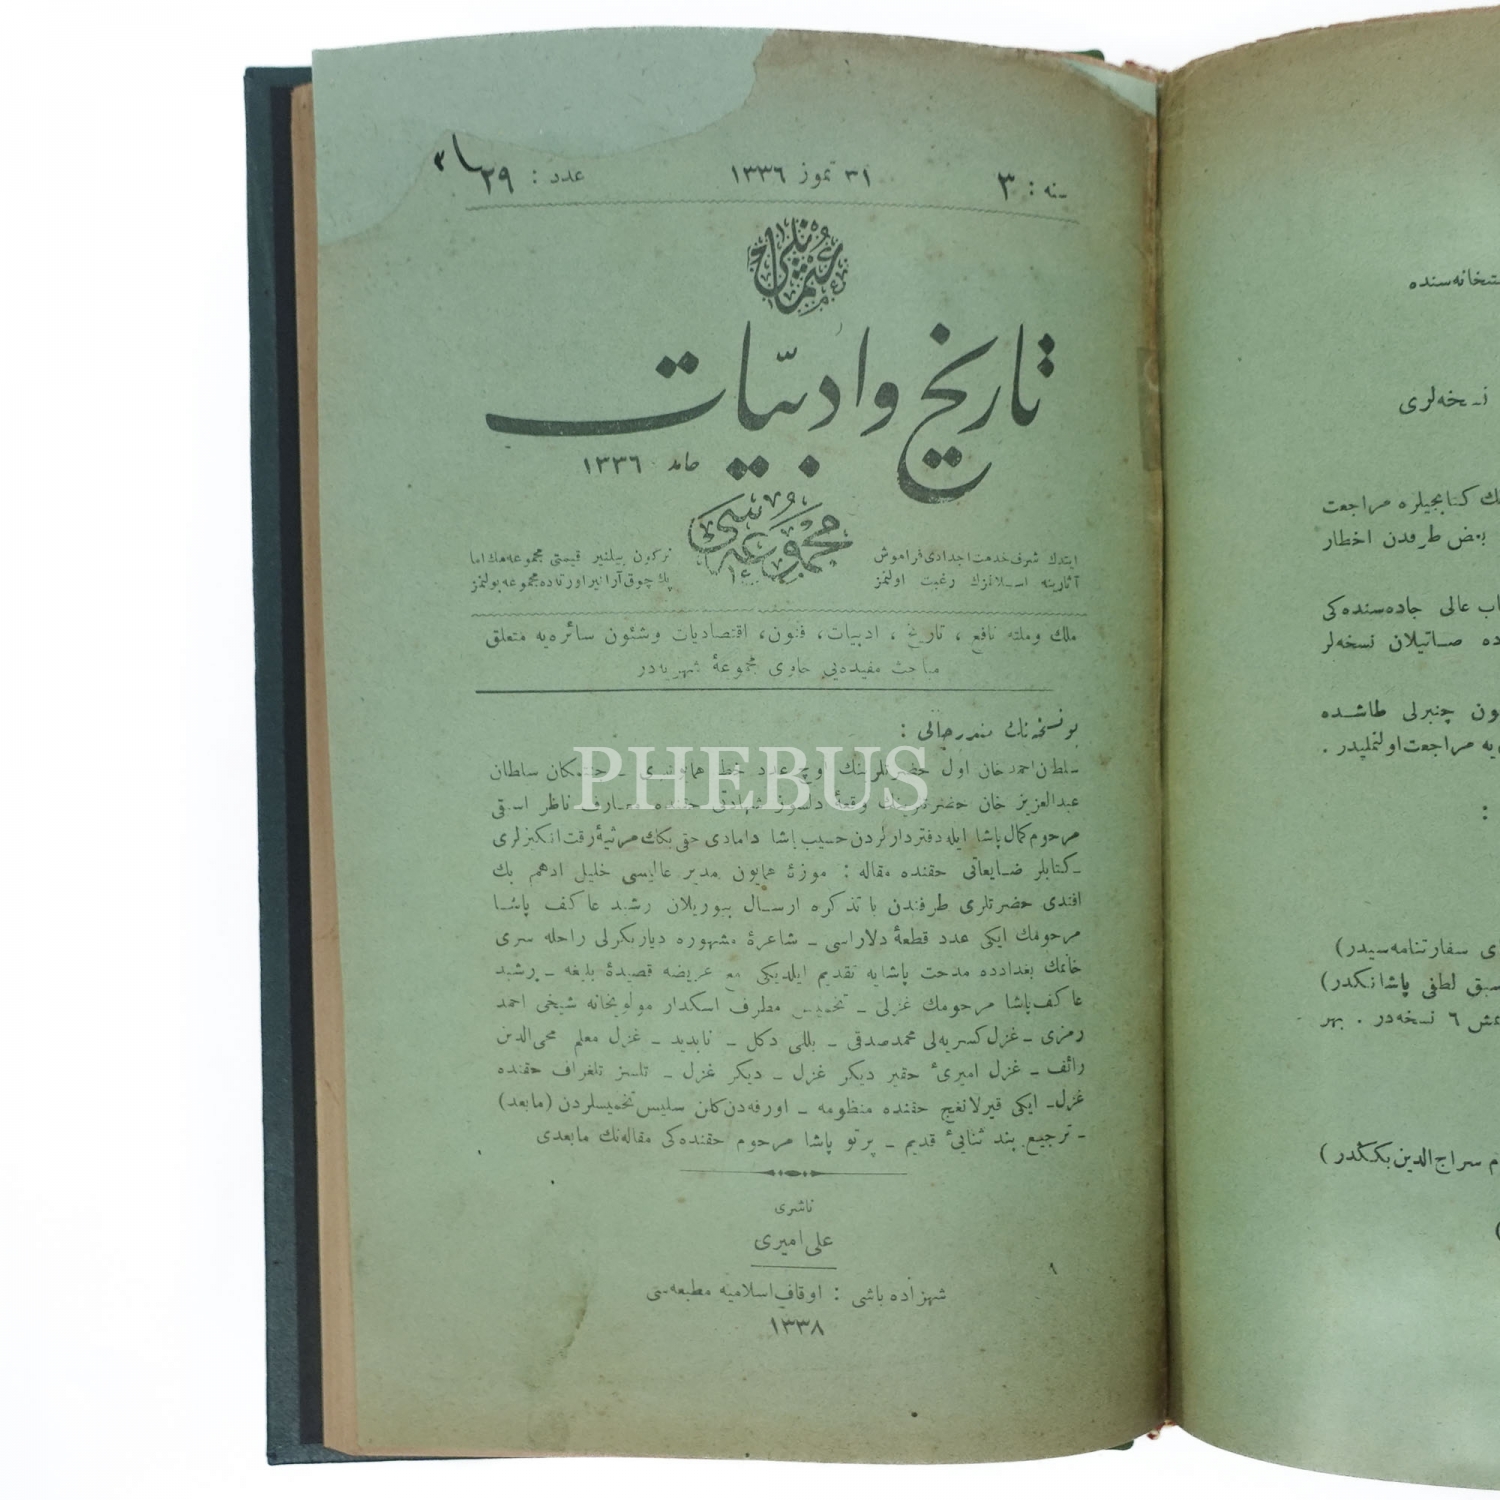 سنه : ٣
٣١ تموز ١٣٣٦
عدد : ٢٩
عثمانلى
تاريخ و ادبيّات
حامد ١٣٣٦
مجموعه‌سى
ايتدك شرف خدمت اجدادى فراموش
آثارينه اسلافزك رغبت اولنمز
بيلنير قيمتى مجموعه‌مك اما
پك چوق آرانير اورتاده مجموعه بولنمز
ملك وملته نافع ، تاريخ ، ادبيات ، فنون ، اقتصاديات وشئون سائره‌يه متعلق
مباحث مفيده‌يى حاوى مجموعهٔ شهريه‌در
بو نسخه‌نك مندرجاتى :
سلطان احمد خان اول حضرتلرينك اوچ عدد خط همايونى ـ جنتمكان سلطان
عبدالعزيز خان حضرتلرينك وقعهٔ دلسوز شهادتى حقنده معارف ناظر اسبقى
مرحوم كمال پاشا ايله دفتردارلردن حسيب پاشا دامادى حقى بكك مرثيهٔ رقت انكيزلرى
ـ كتابلر ضايعاتى حقنده مقاله : موزهٔ همايون مدير عاليسى خليل ادهم بك
افندى حضرتلرى طرفندن با تذكره ارسال بيوريلان رشيد عاكف پاشا
مرحومك ايكى عدد قطعهٔ دلاراسى ـ شاعرهٔ مشهوره دياربكرلى راحله سرى
خانمك بغدادده مدحت پاشايه تقديم ايلديكى مع عريضه قصيدهٔ بليغه ـ رشيد
عاكف پاشا مرحومك غزلى ـ تخميس مطرف اسكدار مولويخانه شيخى احمد
رمزى ـ غزل كسريه‌لى محمد صدقى ـ بللى دكل ـ نابديد ـ غزل معلم محى الدين
رائف ـ غزل اميرئ حقير ديكر غزل ـ ديكر غزل ـ تلسز تلغراف حقنده
غزل ـ ايكى قيرلانغج حقنده منظومه ـ اورفه‌دن كلن سليس تخميسلردن (مابعد)
ـ ترجيع بند ثنائئ قديم ـ پرتو پاشا مرحوم حقنده‌كى مقاله‌نك مابعدى
ناشرى
على اميرى
شهزاده باشى : اوقاف اسلاميه مطبعه‌سى
١٣٣٨
PHEBUS
نسخه‌لرى
كتابجيلره مراجعت
بعض طرفدن اخطار
عالى جاده‌سنده‌كى
صاتيلان نسخه‌لر
چنبرلى طاشده
مراجعت اولنمليدر .
:
سفارتنامه‌سيدر)
لطفى پاشانكدر)
٦ نسخه‌در . بهر
سراج الدين بككدر )